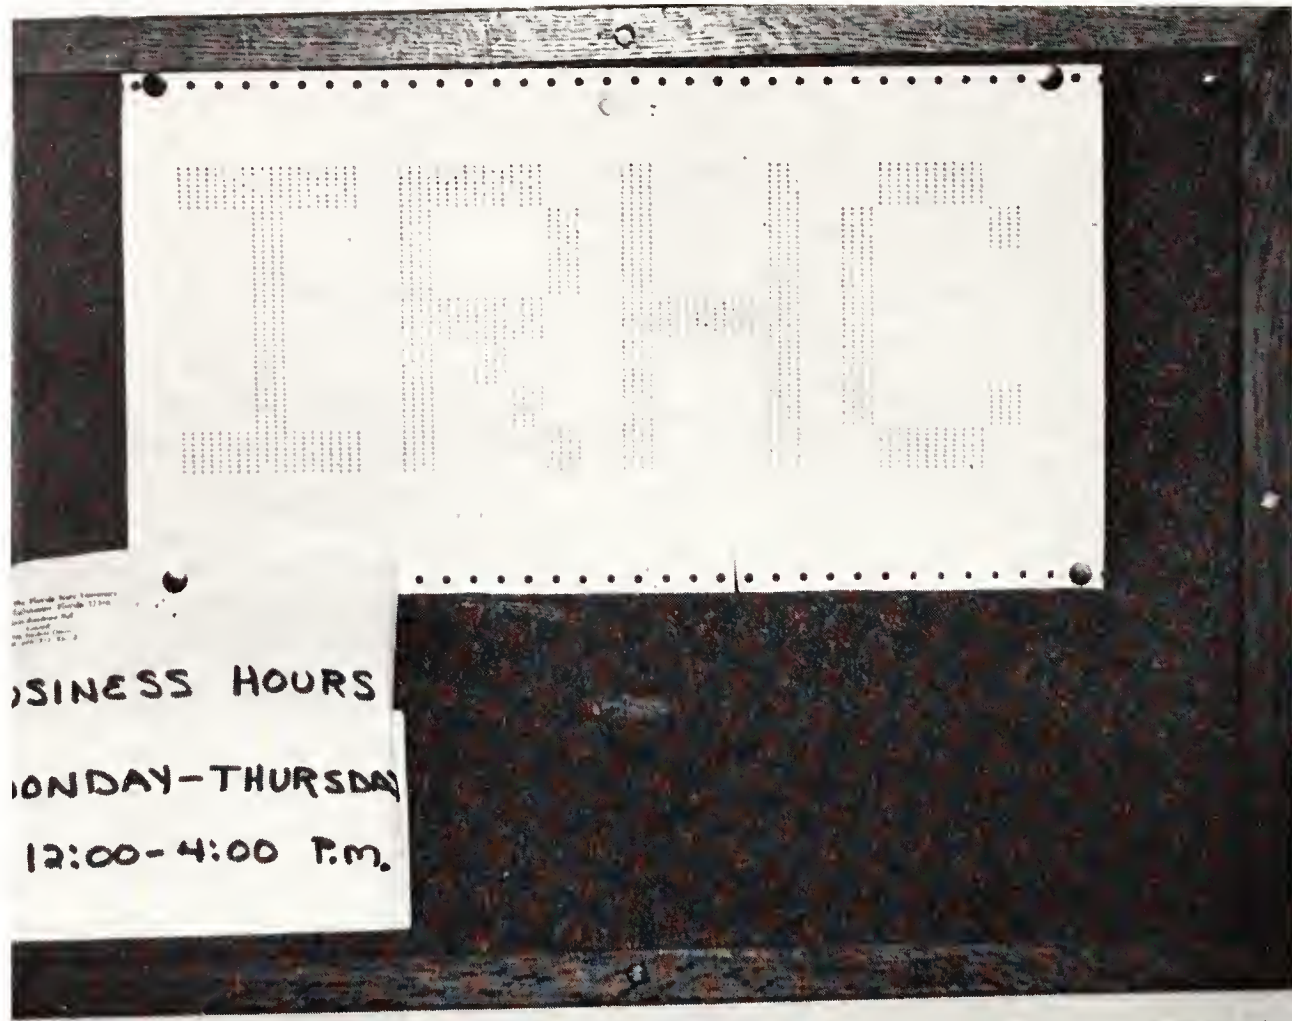 IRHC
USINESS HOURS
ONDAY-THURSDAY
12:00-4:00 P.m.